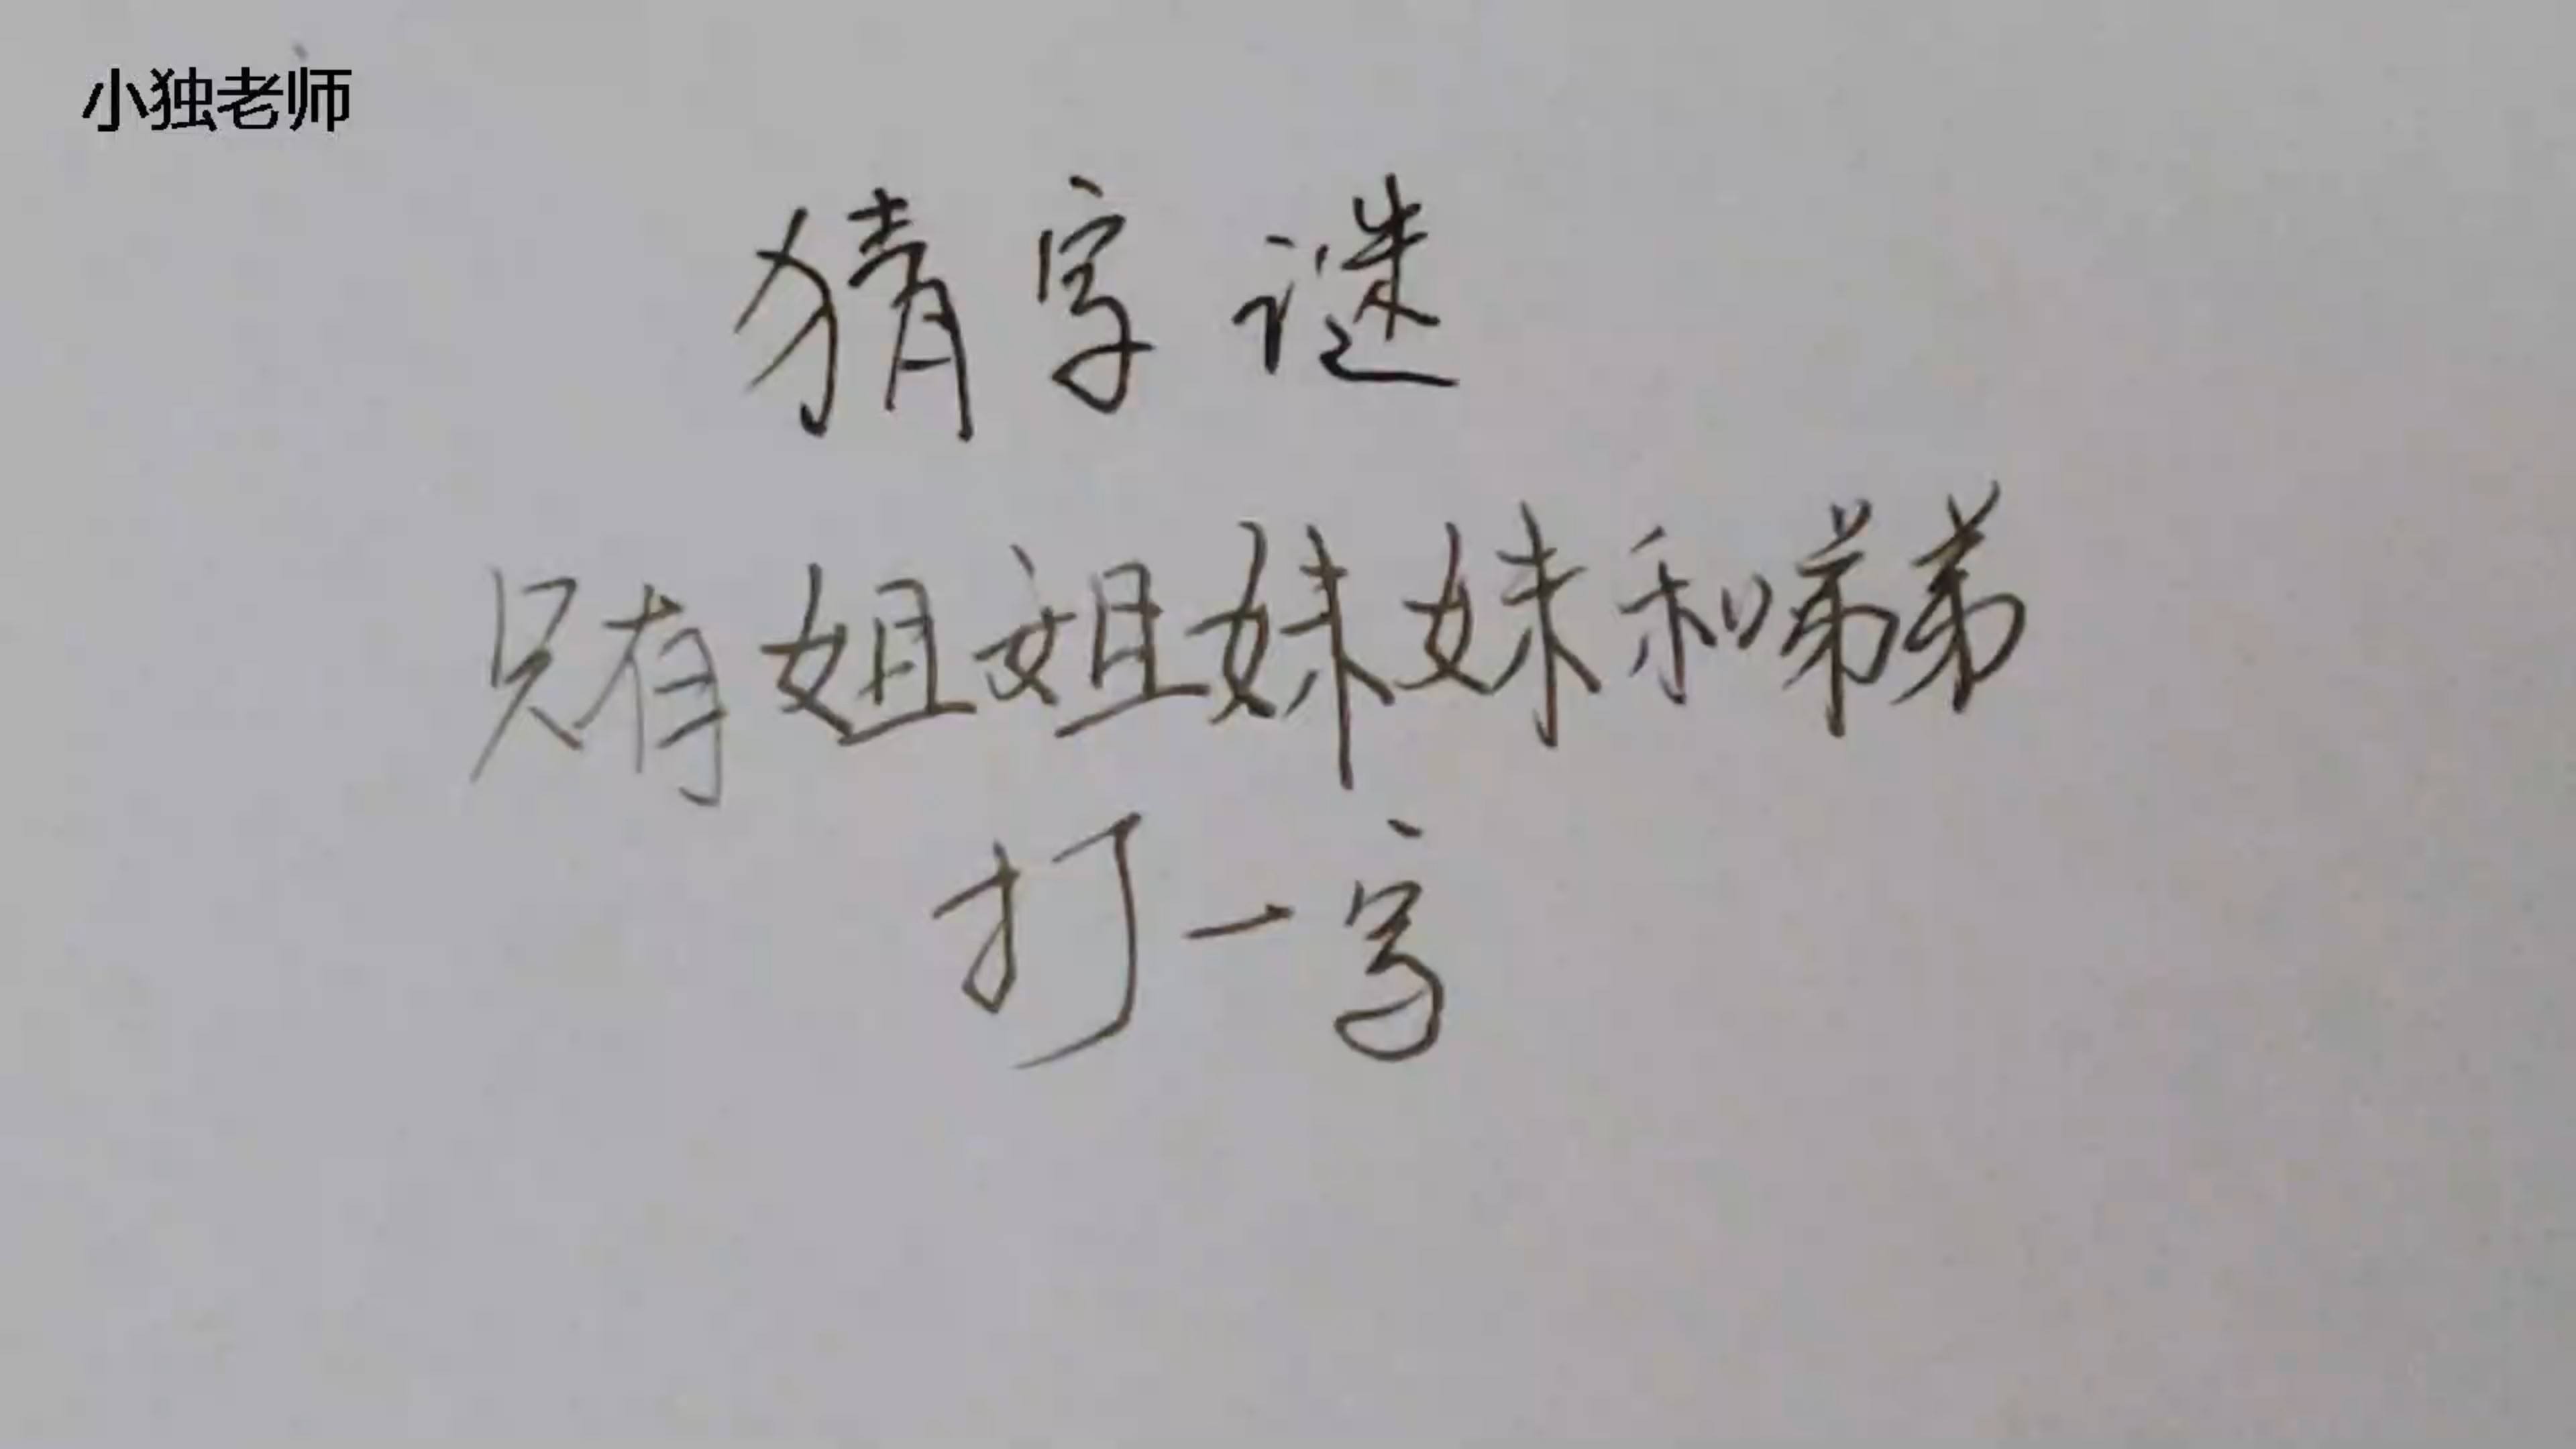 小独老师
猜字谜
只有姐姐妹妹和弟弟
打一字